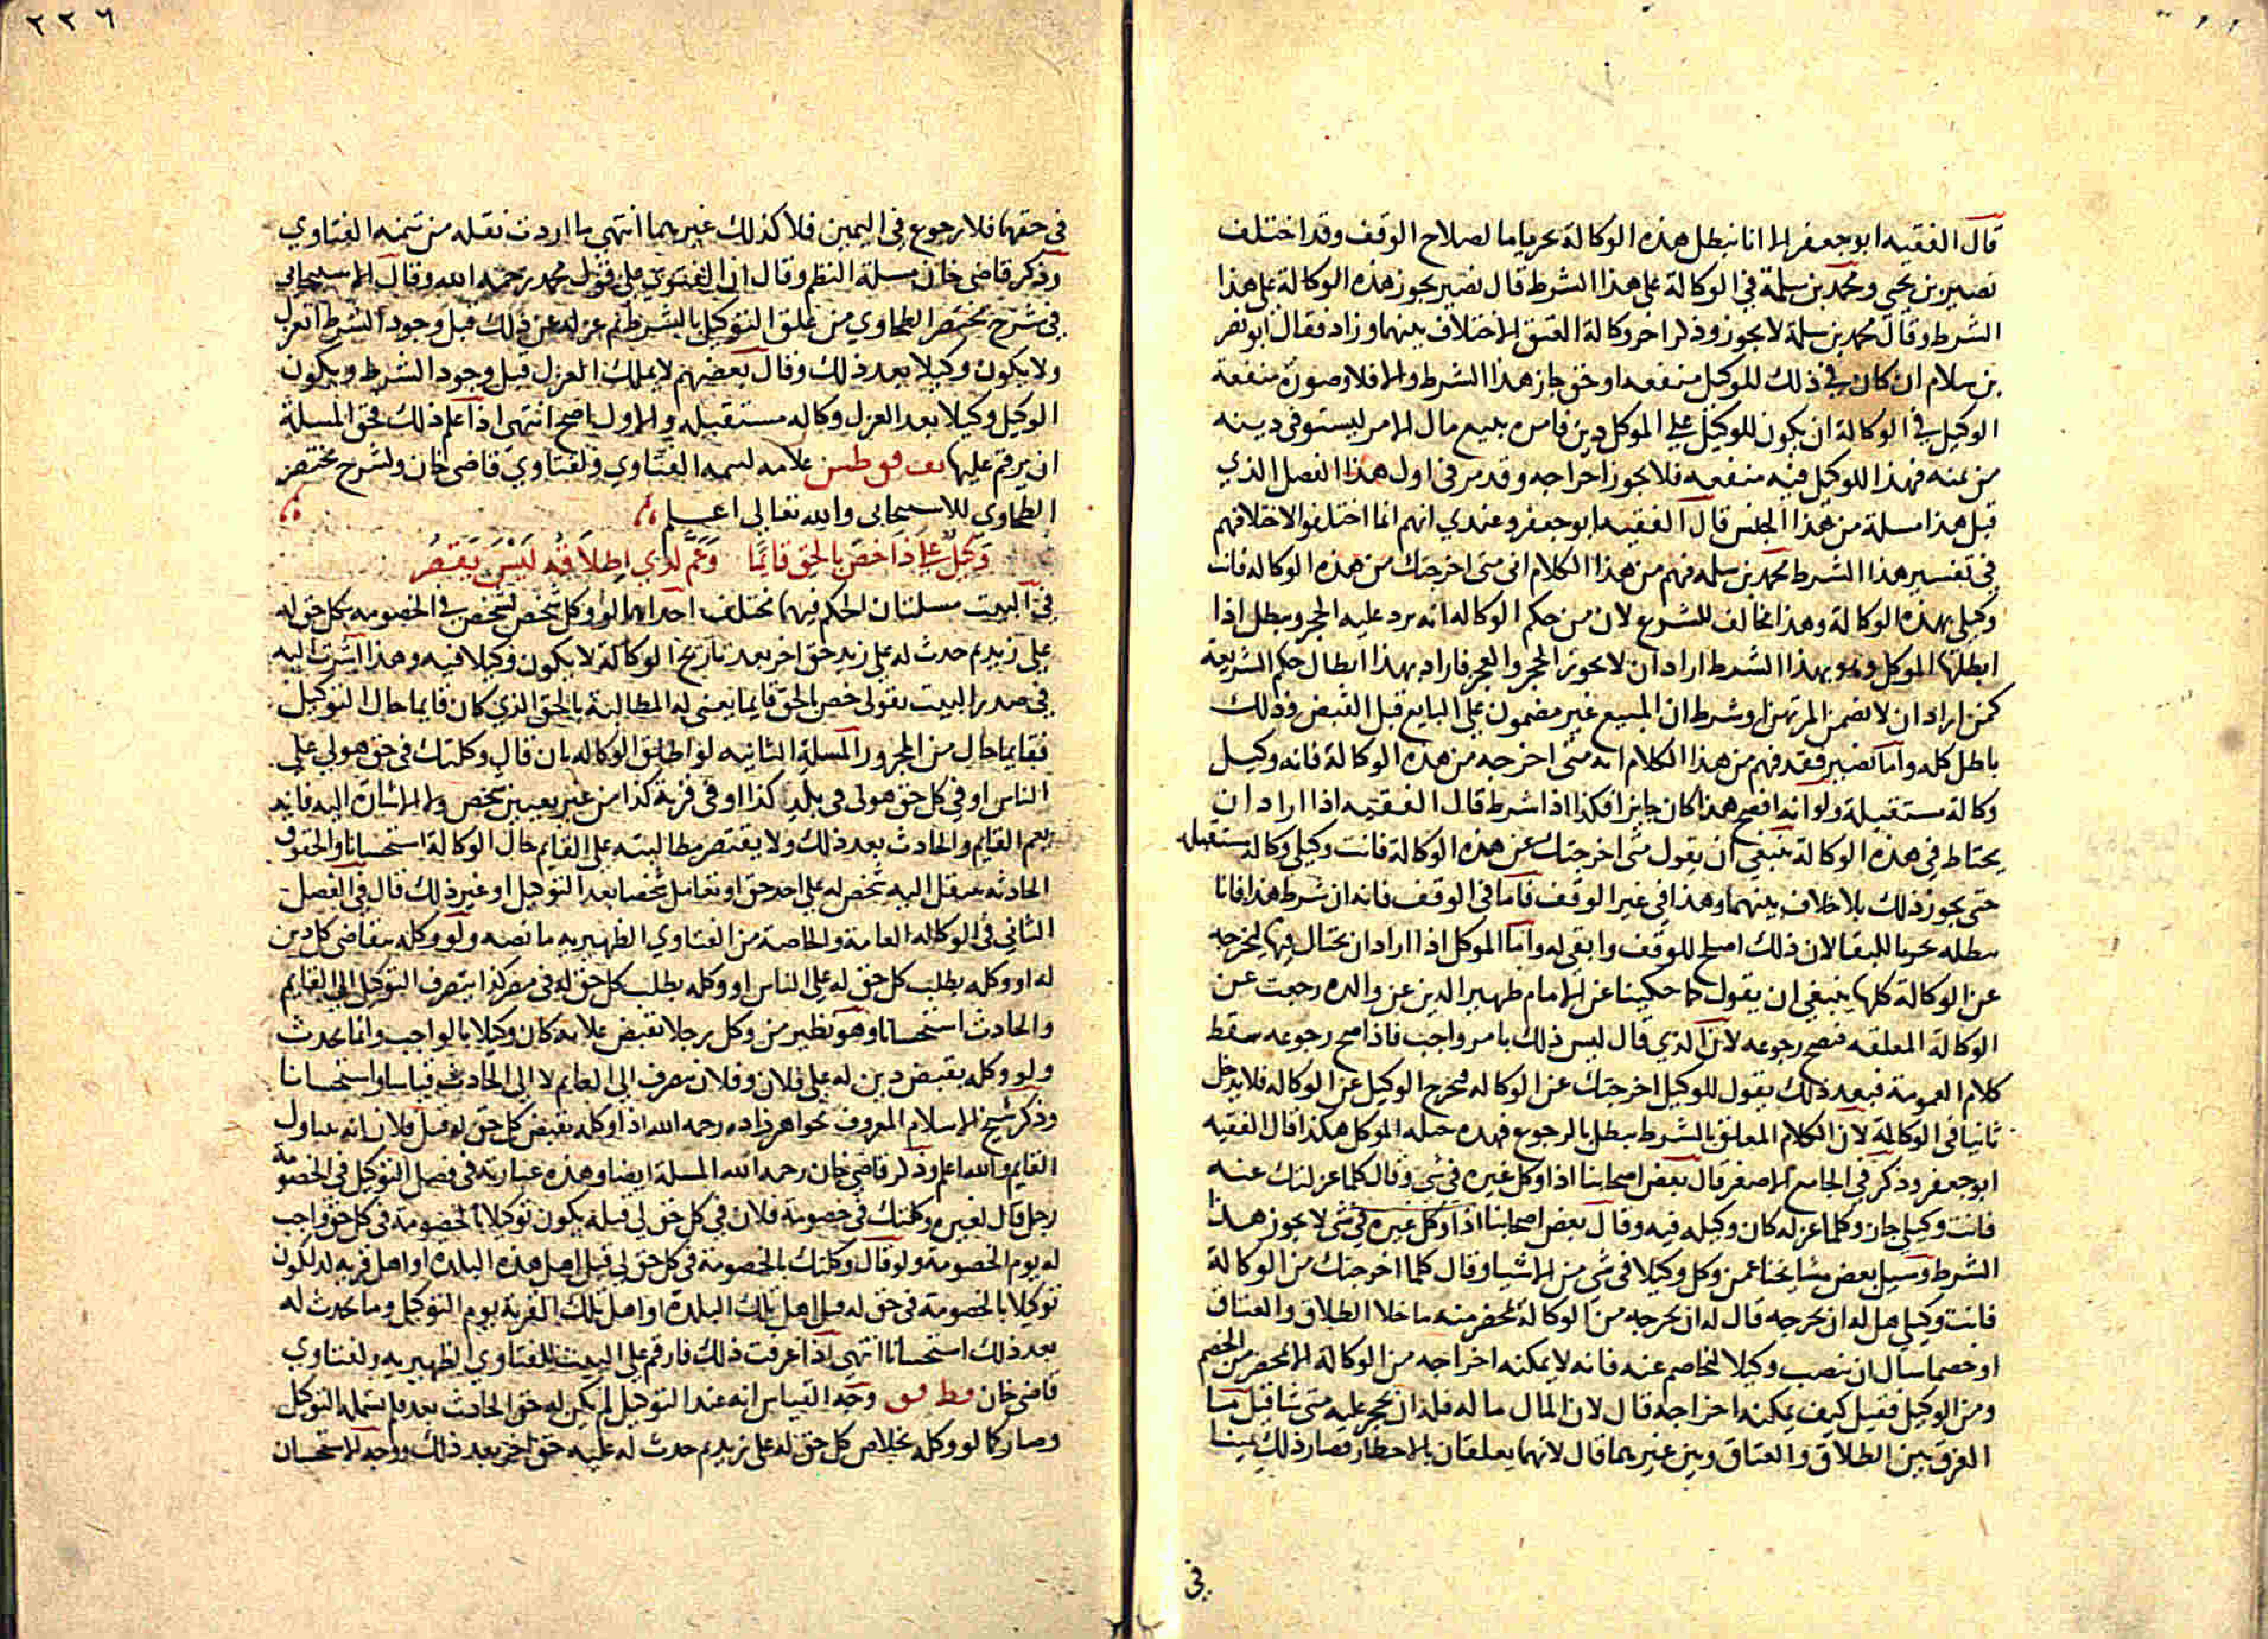 قال الفقيه ابو جعفر الا انا نبطل هذه الوكالة تحريا ما لصلاح الوقف وقد اختلف
نصير بن يحيى ومحمد بن سلمة في الوكالة على هذا الشرط قال نصير يجوز هذه الوكالة على هذا
الشرط وقال محمد بن سلمة لا يجوز وذكر اخر وكالة العتق الاختلاف بينهما وزاد فقال ابو نصر
بن سلام ان كان في ذلك للموكيل منفعه او حق جاز هذا الشرط والا فلا وصورة منفعة
الوكيل في الوكالة ان يكون للوكيل على الموكل دين فامره ببيع مال الامر ليستوفى دينه
من ثمنه فهذا للوكيل فيه منفعه فلا يجوز اخراجه وقد مر في اول هذا الفصل الذي
قبل هذا مسلة من هذا الجنس قال الفقيه ابو جعفر وعندي انهم انما اختلفوا لاختلافهم
في تفسير هذا الشرط محمد بن سلمه فهم من هذا الكلام اني متى اخرجتك من هذه الوكاله فانت
وكيلي بهذه الوكالة وهذا مخالف للشرع لان من حكم الوكاله انه يرد عليه الحجر ويبطل اذا
ابطلها الموكل وهو بهذا الشرط اراد ان لا يجوز الحجر والحجر فاراد بهذا ابطال حكم الشريعة
كمن اراد ان لا يضمن المرتهن او شرط ان المبيع غير مضمون على البايع قبل القبض وذلك
باطل كله واما نصير فقد فهم من هذا الكلام انه متى اخرجه من هذه الوكالة فانه وكيل
وكالة مستقبلة ولو انه افصح هذا كان جايزا فكذا اذا شرط قال الفقيه اذا اراد ان
يحتاط في هذه الوكالة ينبغي ان يقول متى اخرجتك عن هذه الوكالة فانت وكيلي وكالة مستقبله
حتى يجوز ذلك بلا خلاف بينهما وهذا في غير الوقف فاما في الوقف فانه ان شرط هذا فانا
نبطله تحريا للبقا لان ذلك اصلح للوقف وابقى له واما الموكل اذا اراد ان يحتال فيها ليخرجه
عن الوكالة كلها ينبغي ان يقول كما حكينا عن الامام ظهير الدين عن والده رجعت عن
الوكالة المعلقه فيصح رجوعه لان الذي قال ليس ذلك بامر واجب فاذا صح رجوعه سقط
كلام العمومة فبعد ذلك يقول للوكيل اخرجتك عن الوكاله فيخرج الوكيل عن الوكاله فلا يدخل
ثانيا في الوكالة لان الكلام المعلق بالشرط يبطل بالرجوع فهذه حيله الموكل هكذا قال الفقيه
ابو جعفر وذكر في الجامع الاصغر قال بعض اصحابنا اذا وكل غيره في شي وقال كلما عزلتك عنه
فانت وكيلي جاز وكلما عزله كان وكيله فيه وقال بعض اصحابنا اذا وكل غيره في شي لا يجوز هذا
الشرط وسيل بعض مشايخنا عمن وكل وكيلا في شي من الاشيا وقال كلما اخرجتك من الوكالة
فانت وكيلي هل له ان يخرجه قال له ان يخرجه من الوكالة بمحضر منه ما خلا الطلاق والعتاق
او خصما سال ان ينصب وكيلا يخاصم عنه فانه لا يمكنه اخراجه من الوكالة الا بمحضر من الخصم
ومن الوكيل فقيل كيف يمكنه اخراجه قال لان المال ماله فله ان يحجر عليه متى شا قيل ما
الفرق بين الطلاق والعتاق وبين غيرهما قال لانهما يعلقان بالاخطار فصار ذلك يمينا
في
٢٢٦
في حقهما فلا رجوع في اليمين فلا كذلك غيرهما انتهى ما اردت نقله من تتمه الفتاوي
وذكر قاضي خان مسلة النظم وقال ان الفتوي على قول محمد رحمه الله وقال الاسبيجابي
في شرح مختصر الطحاوي من علق التوكيل بالشرط ثم عزله عن ذلك قبل وجود الشرط انعزل
ولا يكون وكيلا بعد ذلك وقال بعضهم لا يملك العزل قبل وجود الشرط ويكون
الوكيل وكيلا بعد العزل وكاله مستقبله والاول اصح انتهى اذا علم ذلك فحق المسلة
ان يرقم عليها علامه لتمه الفتاوي ولفتاوي قاضي خان ولشرح مختصر
الطحاوي للاسبيجابي والله تعالى اعلم
وكيل على ذا خص بالحق قايما وعم لدي اطلاقه ليس يقصر
في البيت مسلتان الحكم فيهما مختلف احداهما لو وكل شخص لشخص في الخصومه بكل حق له
على زيد ثم حدث له على زيد حق اخر بعد تاريخ الوكالة لا يكون وكيلا فيه وهذا اشرت اليه
في صدر البيت بقولي خص بالحق قايما يعني له المطالبة بالحق الذي كان قايما حال التوكيل
فقايما حال من المجرور المسلة الثانيه لو اطلق الوكاله بان قال وكلتك في حق هو لي على
الناس او في كل حق هو لي في بلد كذا او في قرية كذا من غير تعيين شخص ولا الاشارة اليه فانه
يعم القايم والحادث بعد ذلك ولا يقتصر مطالبته على القايم حال الوكالة استحسانا والحقوق
الحادثه ينتقل اليه شخص له على احد حق او تعامل شخصا بعد التوكيل او غير ذلك قال في الفصل
الثاني في الوكاله العامة والخاصة من الفتاوي الظهيريه ما نصه ولو وكله بتقاضي كل دين
له او وكله بطلب كل حق له على الناس او وكله بطلب كل حق له في مصر كذا يتصرف التوكيل الى القايم
والحادث استحسانا وهو نظير من وكل رجلا بقبض غلاته كان وكيلا بالواجب وانما يحدث
ولو وكله بقبض دين له على فلان وفلان ينصرف الى القايم لا الى الحادث قياسا واستحسانا
وذكر شيخ الاسلام المعروف بخواهر زاده رحمه الله اذا وكله بقبض كل حق له قبل فلان انه يتناول
القايم والله اعلم وذكر قاضي خان رحمه الله المسلة ايضا وهذه عبارته في فصل التوكيل في الخصومة
رجل قال لغيره وكلتك في خصومة فلان في كل حق لي قبله يكون توكيلا بالخصومة في كل حق واجب
له يوم الخصومة ولو قال وكلتك بالخصومة في كل حق لي قبل اهل هذه البلده او اهل قريه له يكون
توكيلا بالخصومة في حق له قبل اهل تلك البلدة او اهل تلك القرية يوم التوكيل وما يحدث له
بعد ذلك استحسانا انتهى اذا عرفت ذلك فارقم على البيت للفتاوي الظهيريه ولفتاوي
قاضي خان وجه القياس انه عند التوكيل لم يكن له حق الحادث بعد فلم يشمله التوكل
وصار كما لو وكله بخلاص كل حق له على زيد ثم حدث له عليه حق اخر بعد ذلك ووجه الاستحسان